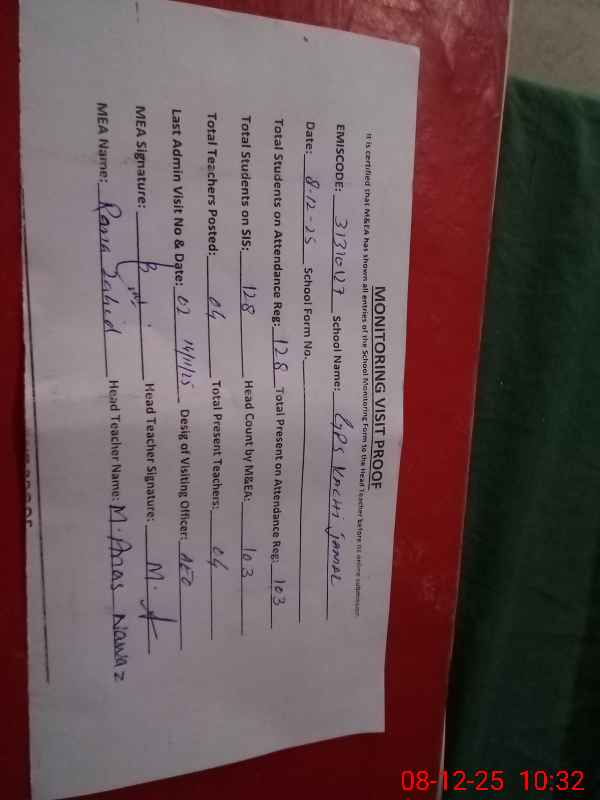 MONITORING VISIT PROOF
It is certified that M&EA has shown all entries of the School Monitoring Form to the Head Teacher before its online submission.
EMISCODE: 31310127 School Name: GPS KACHI JAMAL
Date: 8-12-25 School Form No.
Total Students on Attendance Reg: 128 Total Present on Attendance Reg: 103
Total Students on SIS: 128 Head Count by M&EA: 103
Total Teachers Posted: 04 Total Present Teachers: 04
Last Admin Visit No & Date: 02 14/11/25 Desig of Visiting Officer: AEO
MEA Signature: Head Teacher Signature: M.
MEA Name: Rana Zahid Head Teacher Name: M. Anas Nawaz
08-12-25 10:32